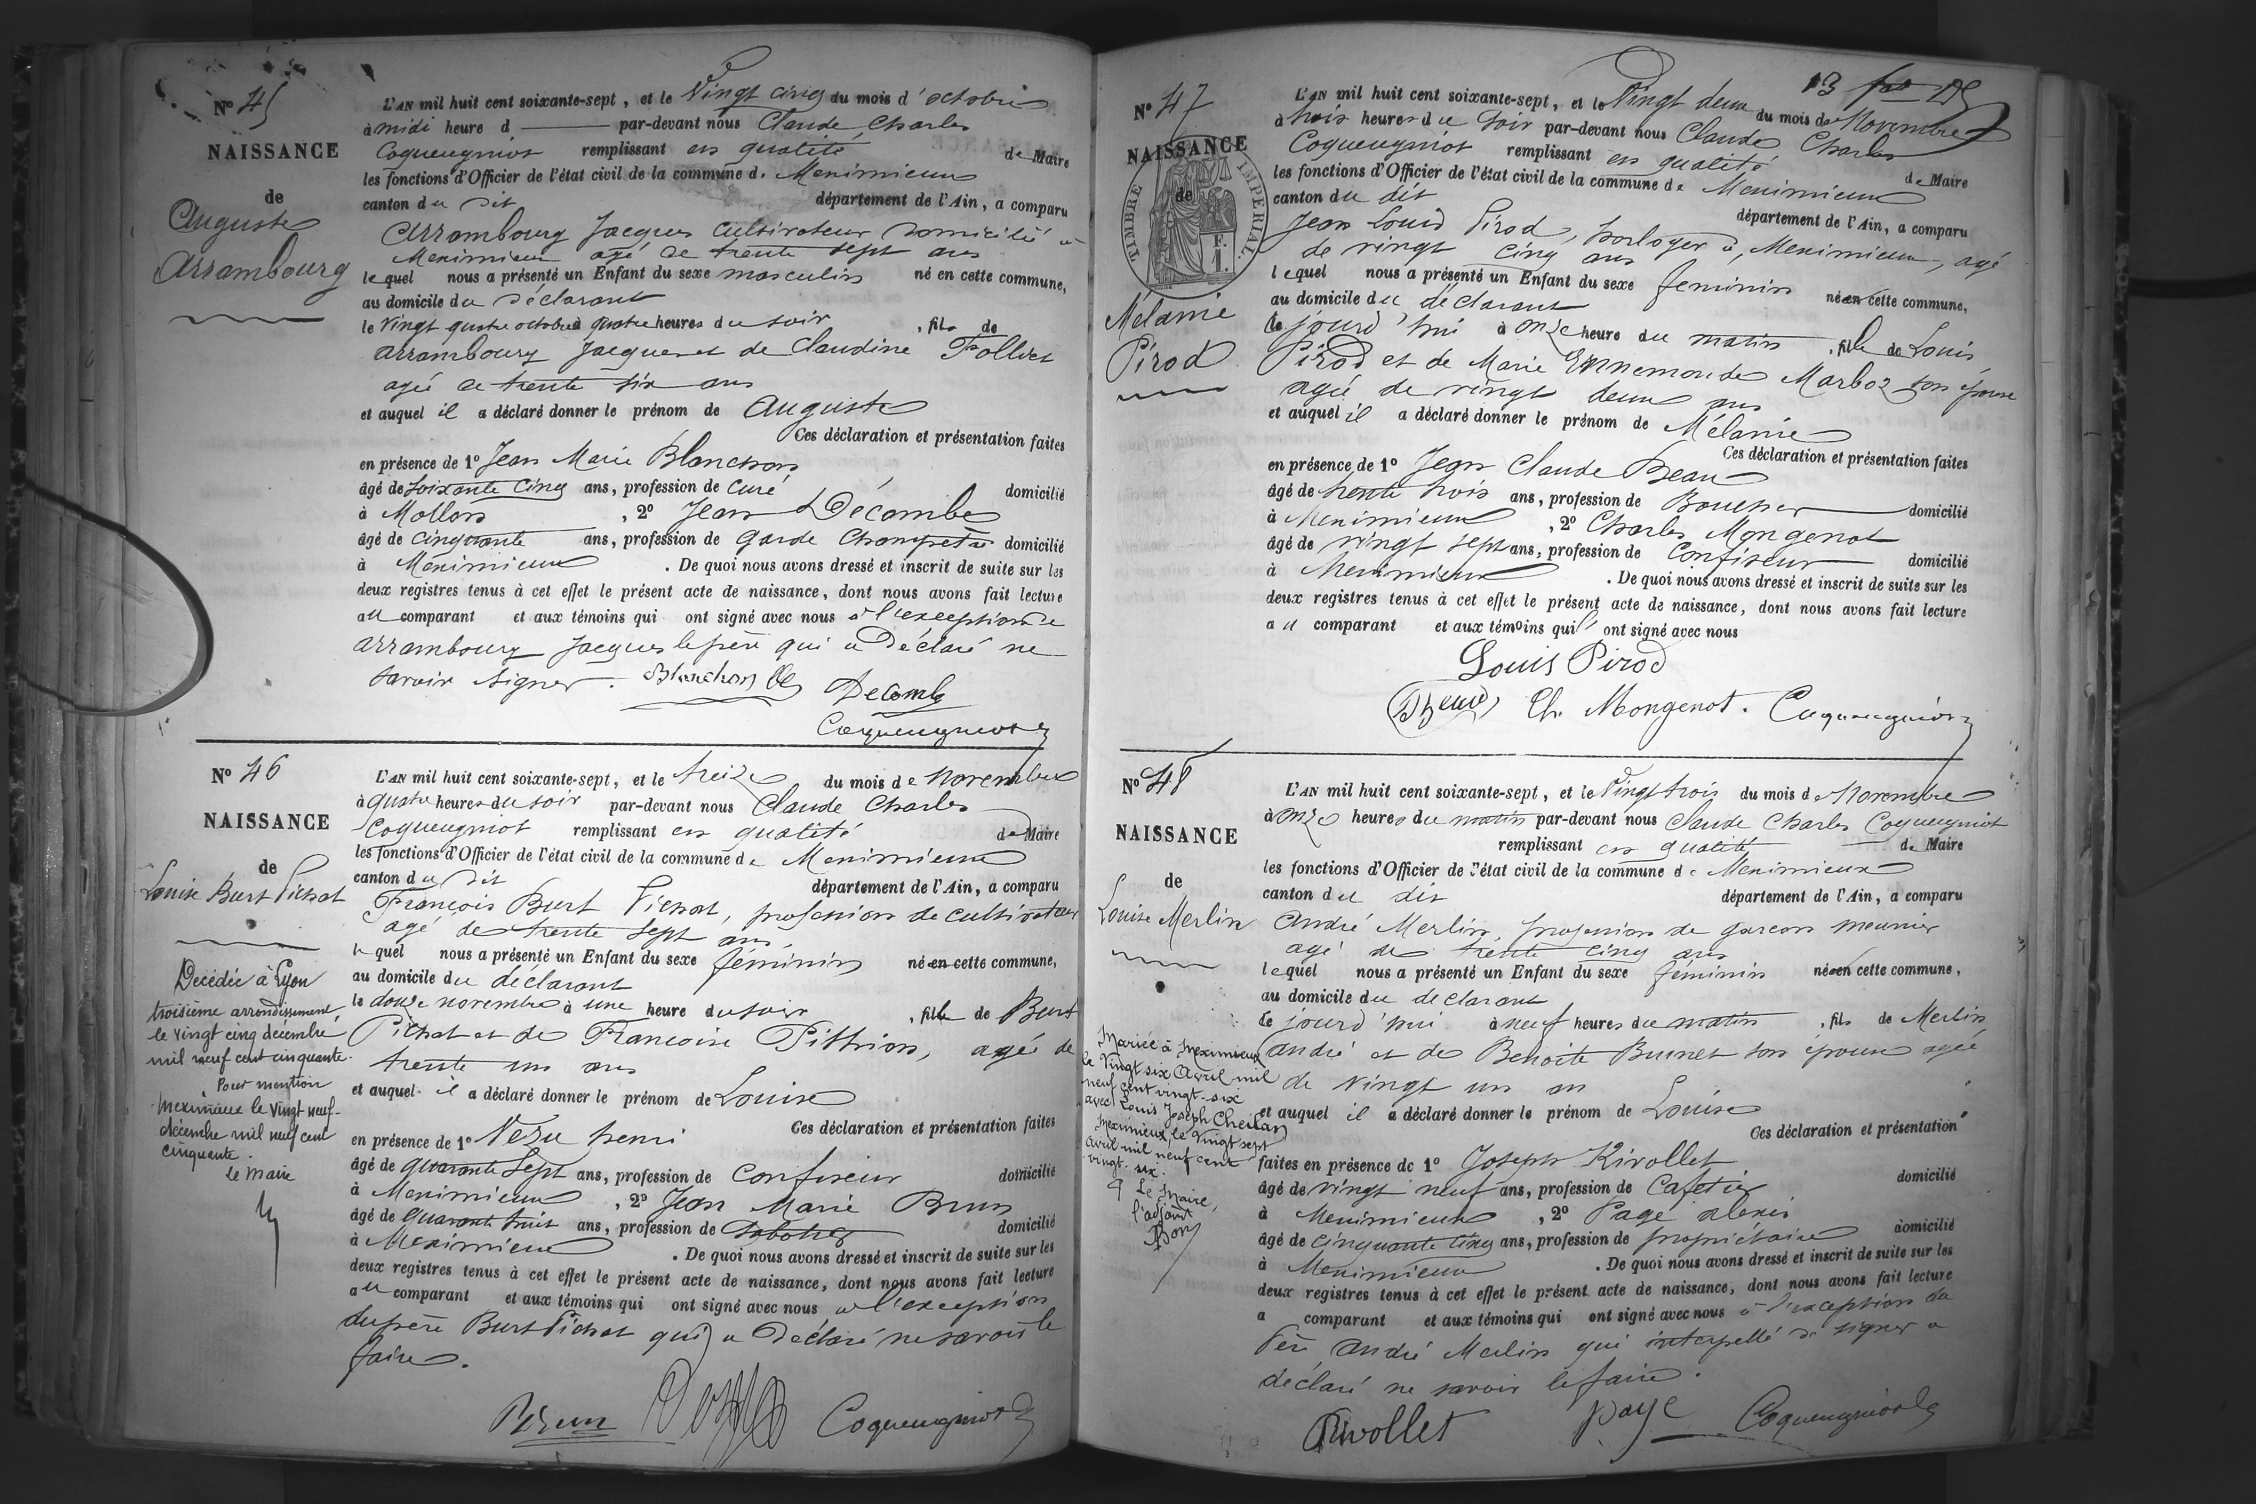 N° 45
NAISSANCE
de
Auguste
Arrambourg
L'AN mil huit cent soixante-sept, et le Vingt cinq du mois d'octobre
à midi heure d par-devant nous Claude Charles
Coqueugniot remplissant en qualité de Maire
les fonctions d'Officier de l'état civil de la commune de Meximieux
canton du dit département de l'Ain, a comparu
Arrambourg Jacques cultivateur domicilié à
Meximieux agé de trente sept ans
lequel nous a présenté un Enfant du sexe masculin né en cette commune,
au domicile du déclarant
le vingt quatre octobre à quatre heures du soir, fils de
Arrambourg Jacques et de Claudine Folliet
agée de trente six ans
et auquel il a déclaré donner le prénom de Auguste
Ces déclaration et présentation faites
en présence de 1° Jean Marie Blanchon
âgé de soixante cinq ans, profession de curé domicilié
à Mollon, 2° Jean Décombe
âgé de cinquante ans, profession de garde champetre domicilié
à Meximieux. De quoi nous avons dressé et inscrit de suite sur les
deux registres tenus à cet effet le présent acte de naissance, dont nous avons fait lecture
au comparant et aux témoins qui ont signé avec nous à l'exception de
arrambourg Jacques le père qui a déclaré ne
savoir signer. Blanchon Decombe
Coqueugniot
N° 46
NAISSANCE
de
Louise Burt Pichat
Décédée à Lyon
troisième arrondissement,
le vingt cinq décembre
mil neuf cent cinquante.
Pour mention
Meximieux le vingt neuf
décembre mil neuf cent
cinquante.
Le Maire
L'AN mil huit cent soixante-sept, et le treize du mois de Novembre
à quatre heures du soir par-devant nous Claude Charles
Coqueugniot remplissant en qualité de Maire
les fonctions d'Officier de l'état civil de la commune de Meximieux
canton du dit département de l'Ain, a comparu
François Burt Pichat, profession de cultivateur
agé de trente sept ans
lequel nous a présenté un Enfant du sexe féminin né en cette commune,
au domicile du déclarant
le douze novembre à une heure du soir, fille de Burt
Pichat et de Françoise Pitthion, agée de
trente un ans
et auquel il a déclaré donner le prénom de Louise
Ces déclaration et présentation faites
en présence de 1° Vezu henri
âgé de quarante sept ans, profession de confiseur domicilié
à Meximieux, 2° Jean Marie Brun
âgé de quarante huit ans, profession de Sabotier domicilié
à Meximieux. De quoi nous avons dressé et inscrit de suite sur les
deux registres tenus à cet effet le présent acte de naissance, dont nous avons fait lecture
au comparant et aux témoins qui ont signé avec nous à l'exception
du père Burt Pichat qui a déclaré ne savoir le
faire.
Brun Coqueugniot
13
N° 47
NAISSANCE
de
TIMBRE IMPERIAL.
F.
1.
Mélanie
Pirod
L'AN mil huit cent soixante-sept, et le Vingt deux du mois de Novembre
à trois heures du soir par-devant nous Claude Charles
Coqueugniot remplissant en qualité de Maire
les fonctions d'Officier de l'état civil de la commune de Meximieux
canton du dit département de l'Ain, a comparu
Jean Louis Pirod, horloger à Meximieux, agé
de vingt cinq ans
lequel nous a présenté un Enfant du sexe féminin né en cette commune,
au domicile du déclarant
le jourd'hui à onze heure du matin, fille de Louis
Pirod et de Marie Ennemonde Marboz son épouse
agée de vingt deux ans
et auquel il a déclaré donner le prénom de Mélanie
Ces déclaration et présentation faites
en présence de 1° Jean Claude Beau
âgé de trente trois ans, profession de Boucher domicilié
à Meximieux, 2° Charles Mongenot
âgé de vingt sept ans, profession de Confiseur domicilié
à Meximieux. De quoi nous avons dressé et inscrit de suite sur les
deux registres tenus à cet effet le présent acte de naissance, dont nous avons fait lecture
au comparant et aux témoins qui ont signé avec nous
Louis Pirod
Beau Ch. Mongenot. Coqueugniot
N° 48
NAISSANCE
de
Louise Merlin
Mariée à Meximieux
le Vingt six Avril mil
neuf cent vingt-six
avec Louis Joseph
Meximieux, le Vingt sept
Avril mil neuf cent
vingt-six.
Le Maire,
l'adjoint
L'AN mil huit cent soixante-sept, et le Vingt trois du mois de Novembre
à onze heures du matin par-devant nous Claude Charles Coqueugniot
remplissant en qualité de Maire
les fonctions d'Officier de l'état civil de la commune de Meximieux
canton du dit département de l'Ain, a comparu
André Merlin, profession de garcon meunier
agé de trente cinq ans
lequel nous a présenté un Enfant du sexe féminin né en cette commune,
au domicile du déclarant
le jourd'hui à neuf heures du matin, fils de Merlin
André et de Benoite Brunet son épouse agée
de vingt un an
et auquel il a déclaré donner le prénom de Louise
Ces déclaration et présentation
faites en présence de 1° Joseph Rivollet
âgé de vingt neuf ans, profession de Cafetier domicilié
à Meximieux, 2° Page alexis
âgé de cinquante cinq ans, profession de propriétaire domicilié
à Meximieux. De quoi nous avons dressé et inscrit de suite sur les
deux registres tenus à cet effet le présent acte de naissance, dont nous avons fait lecture
a comparant et aux témoins qui ont signé avec nous à l'exception du
Père André Merlin qui interpellé de signer a
déclaré ne savoir le faire.
Rivollet page Coqueugniot